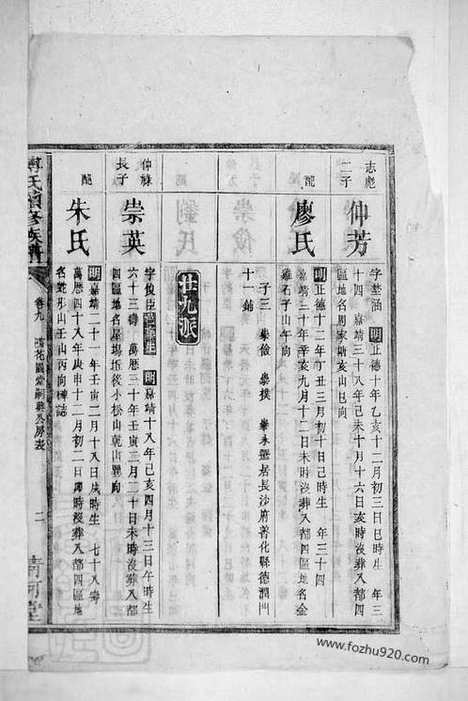 志彪
二子
仲芳
字楚涵 明正德十年乙亥十二月初三日巳時生 年三
十四 嘉靖三十八年己未十月十六日亥時沒葬入都四
區地名周家 亥山巳向
配
廖氏
明正德十二年丁丑三月初十日巳時生 年三十四
嘉靖三十年辛亥九月十二日未時沒葬入都四區地名金
雞石子山午向
子三 崇儉 崇撲 崇永 遷居長沙府善化縣德潤門
十一鋪
廿九派
仲祿
長子
崇英
字俊臣 明嘉靖十八年己亥四月十三日午時生
六十三壽 萬曆三十年壬寅三月二十日未時沒葬八都
四區地名屋場坵後小松山乾山巽向
配
朱氏
明嘉靖二十一年壬寅二月十八日戌時生 七十八壽
萬曆四十八年庚申十二月初二日 時沒葬八都四區地
名蛇形山壬山丙向碑誌
氏續修族譜
卷九
二
清河堂
www.fozhu920.com